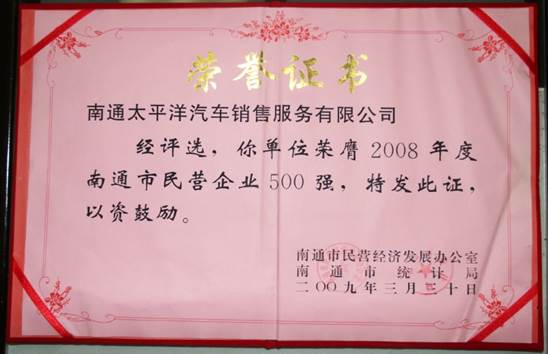 荣誉证书
南通太平洋汽车销售服务有限公司
经评选，你单位荣膺2008年度
南通市民营企业500强，特发此证，
以资鼓励。
南通市民营经济发展办公室
南通市统计局
二〇〇九年三月二十日